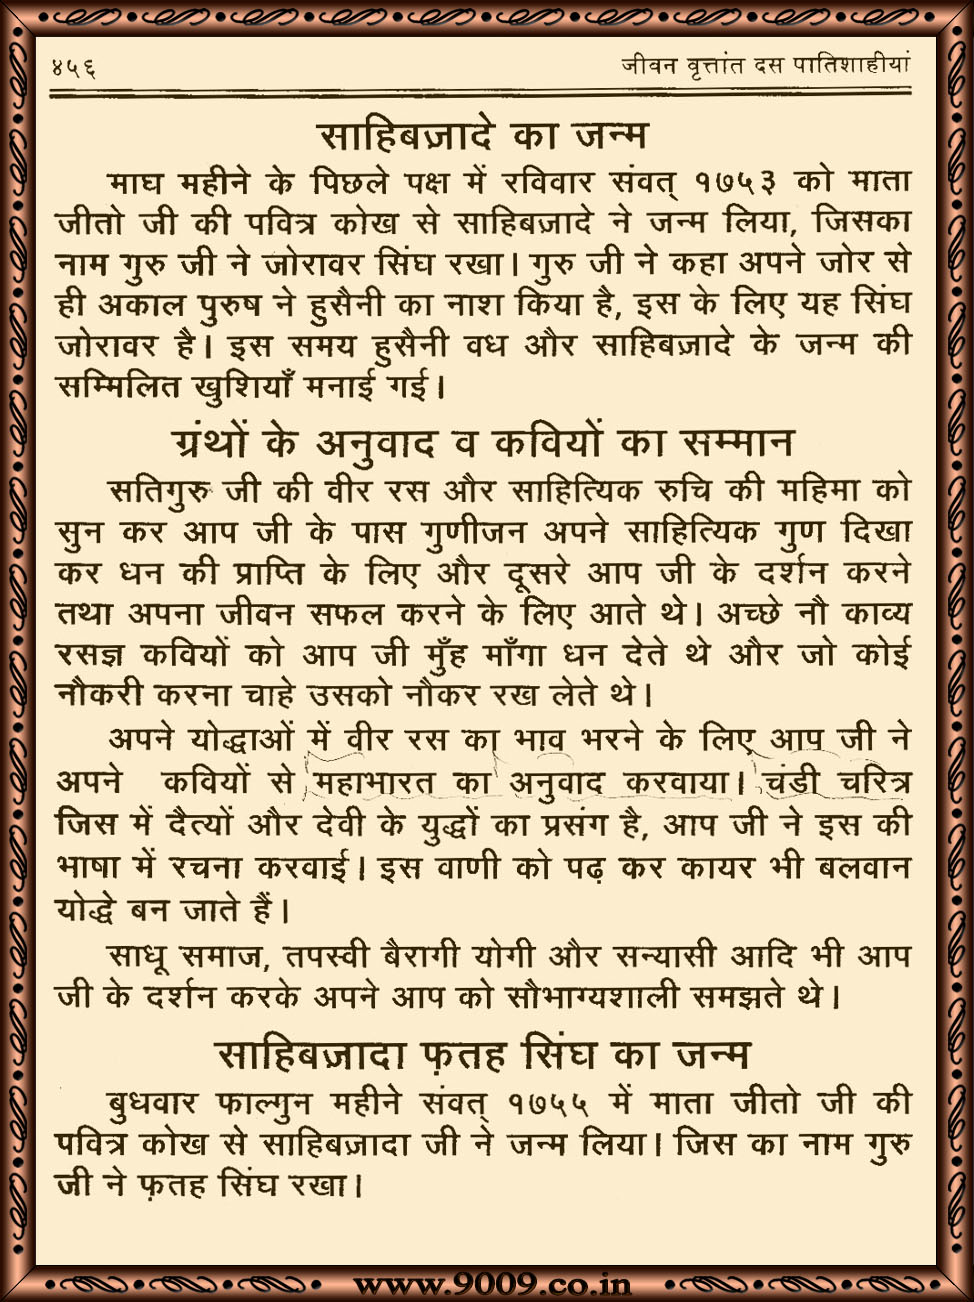 ४५६ जीवन वृत्तांत दस पातिशाहीयां
साहिबज़ादे का जन्म
माघ महीने के पिछले पक्ष में रविवार संवत् १७५३ को माता
जीतो जी की पवित्र कोख से साहिबज़ादे ने जन्म लिया, जिसका
नाम गुरु जी ने जोरावर सिंघ रखा। गुरु जी ने कहा अपने जोर से
ही अकाल पुरुष ने हुसैनी का नाश किया है, इस के लिए यह सिंघ
जोरावर है। इस समय हुसैनी वध और साहिबज़ादे के जन्म की
सम्मिलित खुशियाँ मनाई गई।
ग्रंथों के अनुवाद व कवियों का सम्मान
सतिगुरु जी की वीर रस और साहित्यिक रुचि की महिमा को
सुन कर आप जी के पास गुणीजन अपने साहित्यिक गुण दिखा
कर धन की प्राप्ति के लिए और दूसरे आप जी के दर्शन करने
तथा अपना जीवन सफल करने के लिए आते थे। अच्छे नौ काव्य
रसज्ञ कवियों को आप जी मुँह माँगा धन देते थे और जो कोई
नौकरी करना चाहे उसको नौकर रख लेते थे।
अपने योद्धाओं में वीर रस का भाव भरने के लिए आप जी ने
अपने कवियों से महाभारत का अनुवाद करवाया। चंडी चरित्र
जिस में दैत्यों और देवी के युद्धों का प्रसंग है, आप जी ने इस की
भाषा में रचना करवाई। इस वाणी को पढ़ कर कायर भी बलवान
योद्धे बन जाते हैं।
साधू समाज, तपस्वी बैरागी योगी और सन्यासी आदि भी आप
जी के दर्शन करके अपने आप को सौभाग्यशाली समझते थे।
साहिबज़ादा फ़तह सिंघ का जन्म
बुधवार फाल्गुन महीने संवत् १७५५ में माता जीतो जी की
पवित्र कोख से साहिबज़ादा जी ने जन्म लिया। जिस का नाम गुरु
जी ने फ़तह सिंघ रखा।
www.9009.co.in